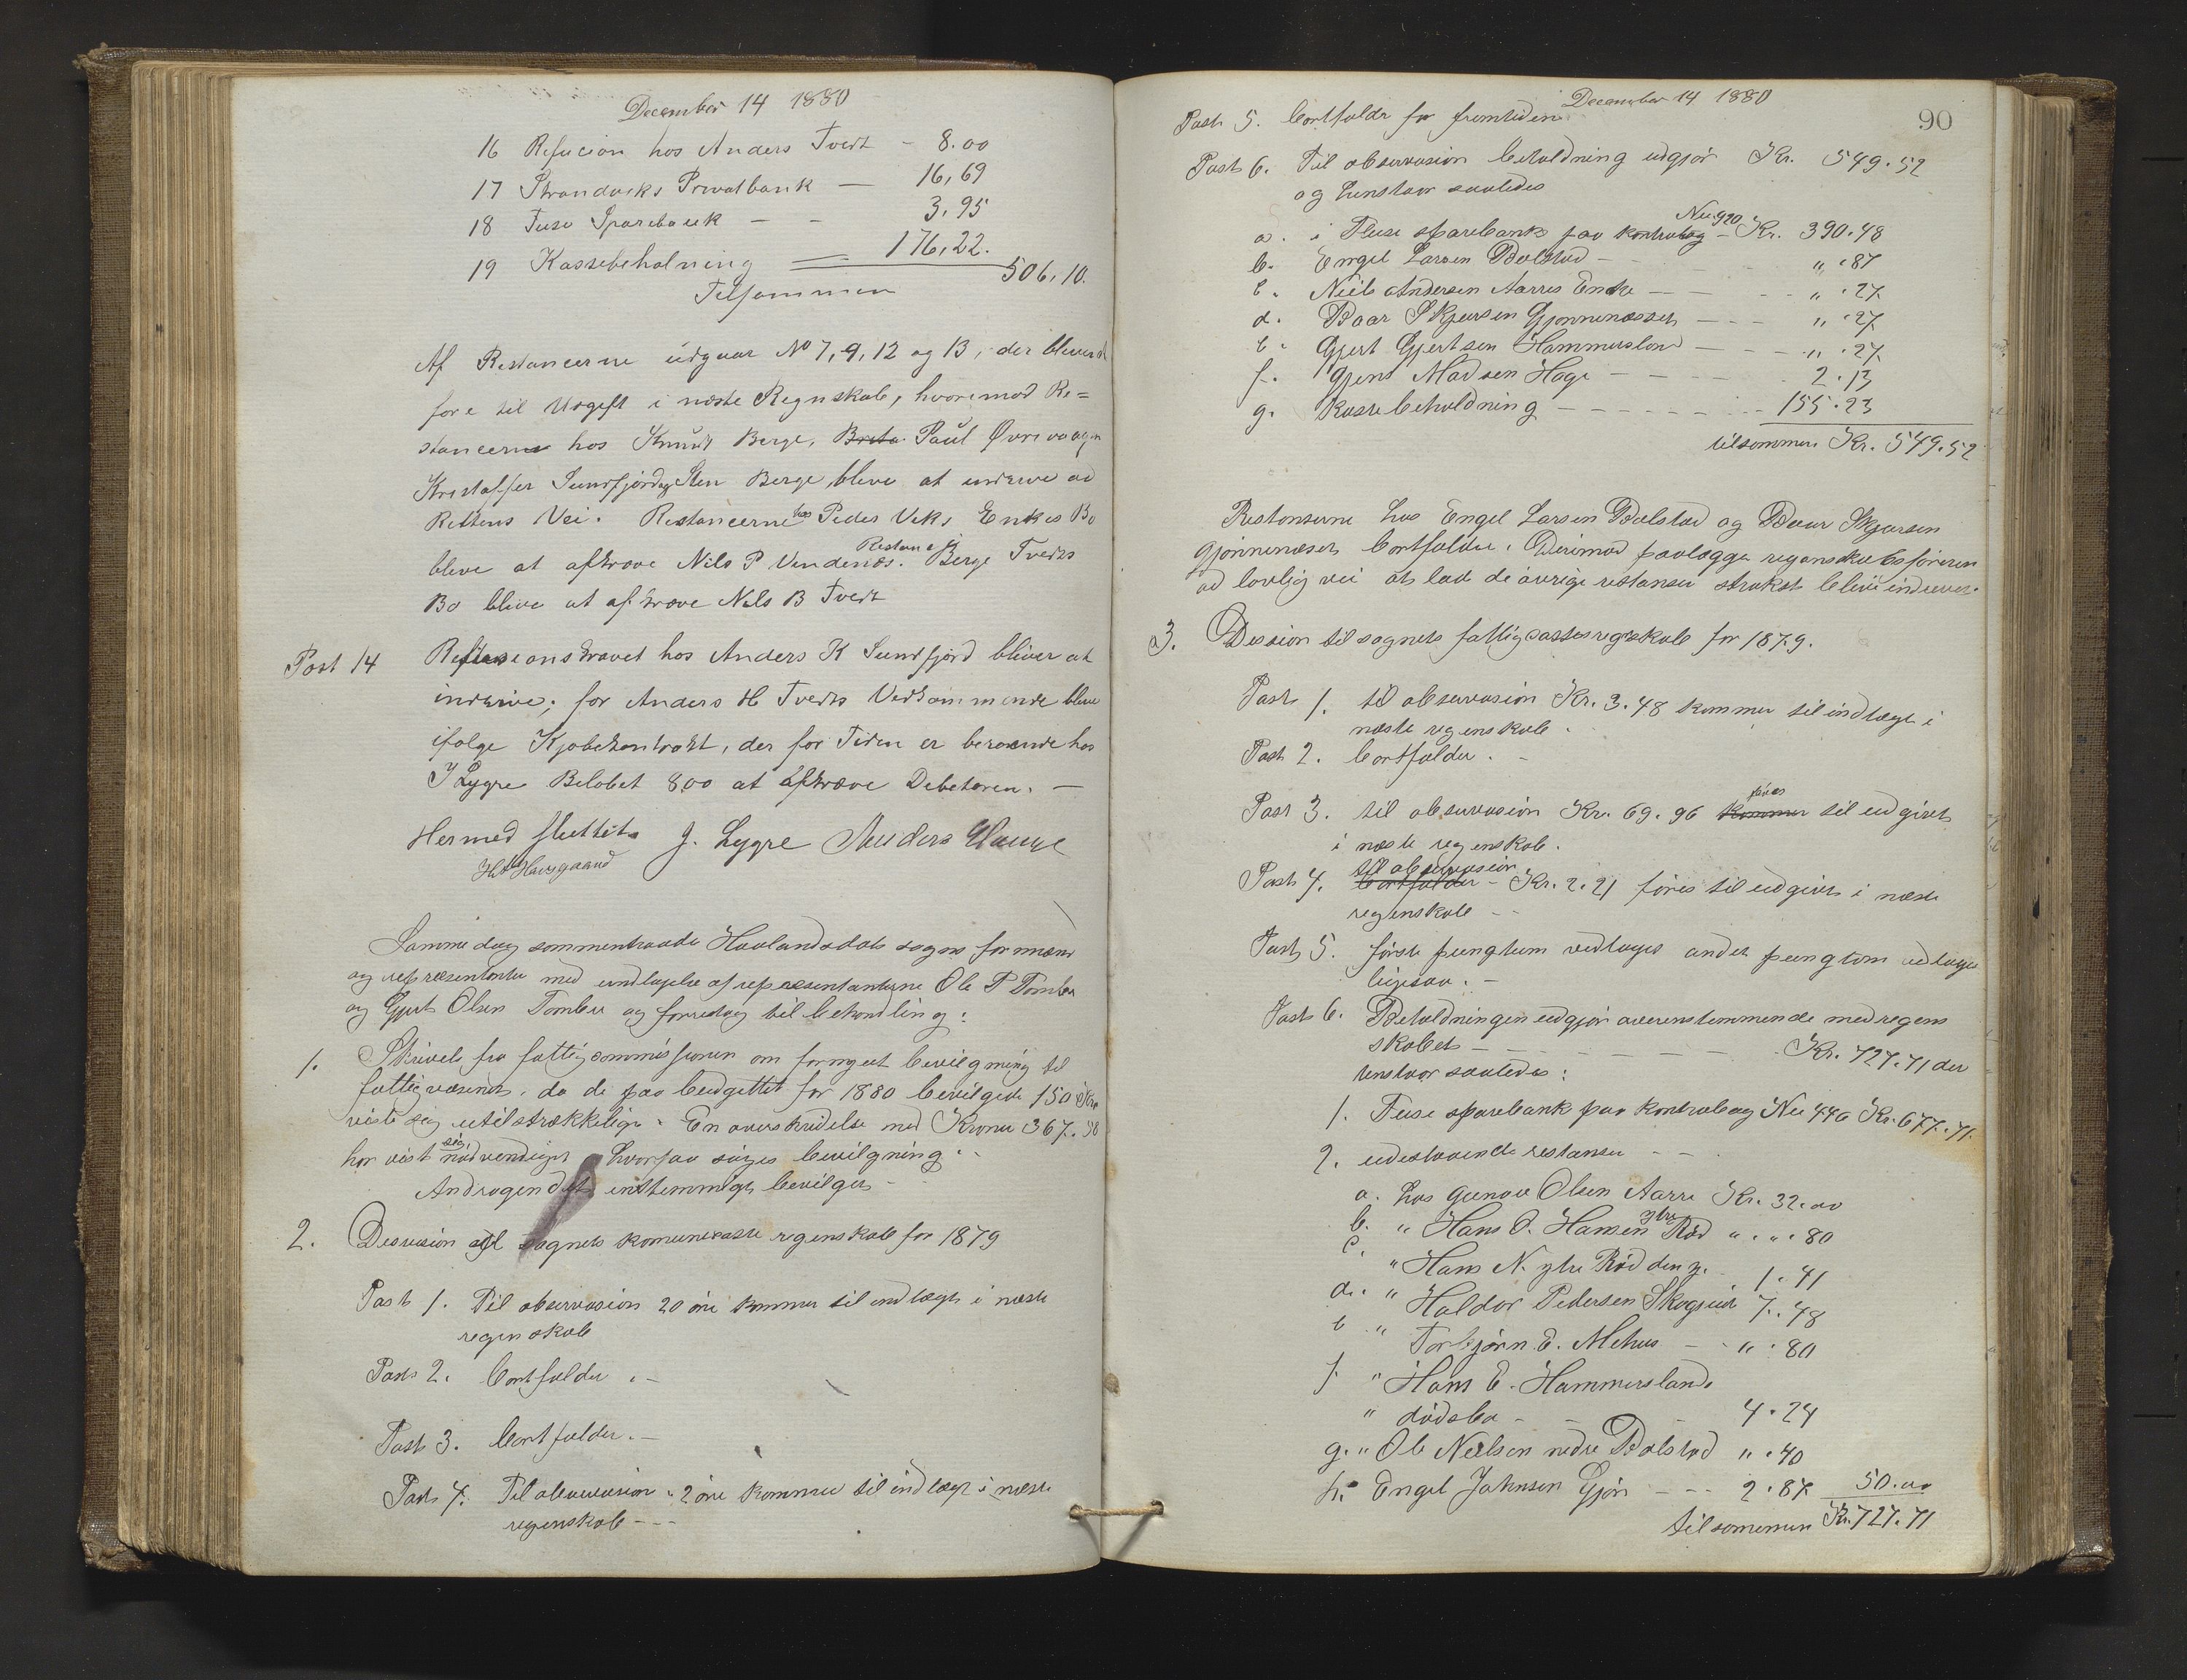 December 14 1880
16 Refucion hos Anders Tvedt - 8.00
17 Strandviks Privatbank — 16,69
18 Fuse Sparebank — - 3.95
19 Kassebeholning 176,22.
Tilsammen 506,10.
Af Restancerne udgaar No 7, 9, 12 og 13, der bliver at
føre til Udgift i næste Regnskab, hvorimod Re=
stancerne hos Knud Berge, Brita Paul Øvrevaagen
Kristoffer Sundfjord og Sten Berge blive at inddrive ad
Rettens Vei. Restancerne hos Peder Viks Enkes Bo
bleve at afkræve Nils P Vindenes. Restance Berge Tvedts
Bo blive at afkræve Nils B Tvedt
Post 14 Refusionskravet hos Anders K Sundfjord bliver at
inddrive; for Anders H Tvedts Vedkommende bliver
ifølge Kjøbekontrakt, der for Tiden er beroende hos
J Lygre Beløbet 8,00 at afkræve Debetoren. —
Hermed sluttet J. Lygre Anders Hauge
H A Havsgaard
Samme dag sammentraadte Haalandsdals sogns formænd
og repræsentanter med undtagelse af repræsentanterne Ole P Tombre
og Gjert Olsen Tombre og foretog til behandling:
1. Skrivelse fra fattigcommissionen om fornyet bevilgning til
fattigvæsenet, da de paa budgettet for 1880 bevilgede 150 Kr
viste sig utilstrækkelige. En overskridelse med Kroner 367.58
har vist sig nødvendigt hvorfor søges bevilgning. -
Andragendet enstemmigt bevilget -
2. Desision til sognets komunekasse regenskab for 1879
Post 1. Til observasion 20 øre kommer til indtægt i næste
regenskab
Post 2. bortfalder. -
Post 3. bortfalder. -
Post 4. Til observasion " 2 øre kommer til indtægt i næste
regenskab - - -
December 14 1880
90
Post 5. bortfalder for fremtiden
Post 6. Til observasion beholdning udgjør Kr. 549.52
og henstaar saaledes
a. i Fuse sparebank paa kontrabog Nu. 920 - Kr. 390.48
b. Engel Larsen Bolstad - " . 87
c. Niels Andersen Aarres Enke — " . 27
d. Baar Skjersen Gjønnenesset — " . 27
e. Gjert Gjertsen Hammersland — " . 27
f. Gjert Madsen Hage - 2.13
g. Kassebeholdning - 155.23
tilsammen Kr. 549.52
Restanserne hos Engel Larsen Bolstad og Baar Skjersen
Gjønnenesset bortfalder. Derimod paalægges regenskabsføreren
ad lovlig vei at lade de øvrige restanser strakst blive inddrevet.
3. Desision til sognets fattigcassesregnskab for 1879.
Post 1. til observasion Kr. 3.48 kommer til indtægt i
næste regenskab.
Post 2. bortfalder. -
Post 3. til observasion Kr. 69.96 kommer føres til udgivt
i næste regenskab.
Post 4. bortfalder til observasion - Kr. 2.21 føres til udgivt i næste
regenskab - -
Post 5. første pungtum vedtages andet pungtum vedtages
ligesaa. -
Post 6. Beholdningen udgjør overenstemmende med regen
skabet - Kr. 727.71 der
henstaar saaledes:
1. Fuse sparebank paa kontrabog Nu 446 Kr. 677.71.
2. udestaaende restanser - -
a. hos Gunar Olsen Aarre Kr. 32.00
b. " Hans O. Hansen ytre Rød " . " . 80
c. " Hans N. ytre Rød den y. 1.41
d. " Haldor Pedersen Skogseid 7.48
e " Torbjørn E. Mehus - " . 80
f. " Hans E. Hammersland
" dødsbo - 4.24
g. " Ole Neelsen nedre Bolstad " . 40
h. " Engel Johnsen Gjøn - - - 2.87 50.00
tilsammen Kr. 727.71